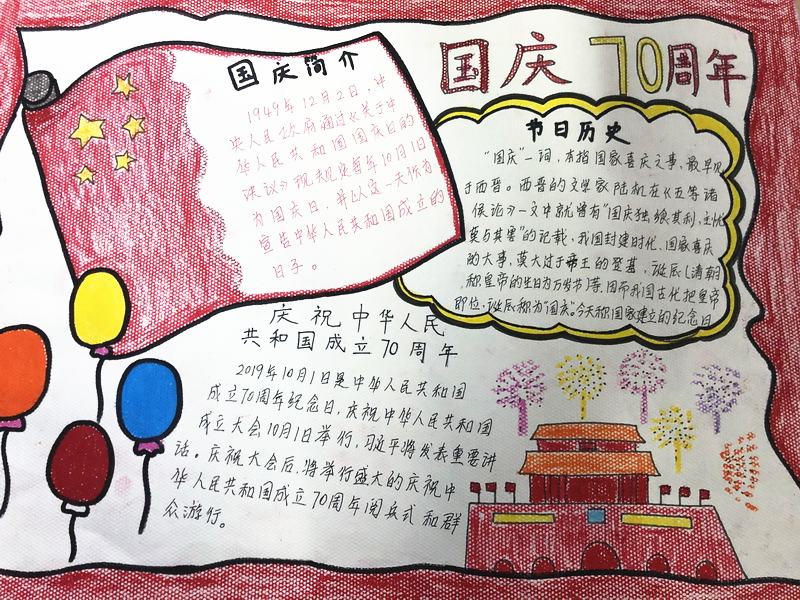 国庆70周年
国庆简介
1949年12月2日,中
央人民政府通过《关于中
华人民共和国国庆日的
决议》规规定每年10月1日
为国庆日,并以这一天作为
宣告中华人民共和国成立的
日子。
节日历史
“国庆”一词,本指国家喜庆之事,最早见
于西晋。西晋的文学家陆机在《五等诸
侯论》一文中就曾有“国庆独飨其利,主忧
莫与其害”的记载,我国封建时代、国家喜庆
的大事,莫大过于帝王的登基、诞辰(清朝
称皇帝的生日为万岁节)等,因而我国古代把皇帝
即位、诞辰称为“国庆”。今天称国家建立的纪念日
庆祝中华人民
共和国成立70周年
2019年10月1日是中华人民共和国
成立70周年纪念日,庆祝中华人民共和国
成立大会10月1日举行,习近平将发表重要讲
话。庆祝大会后,将举行盛大的庆祝中
华人民共和国成立70周年阅兵式和群
众游行。